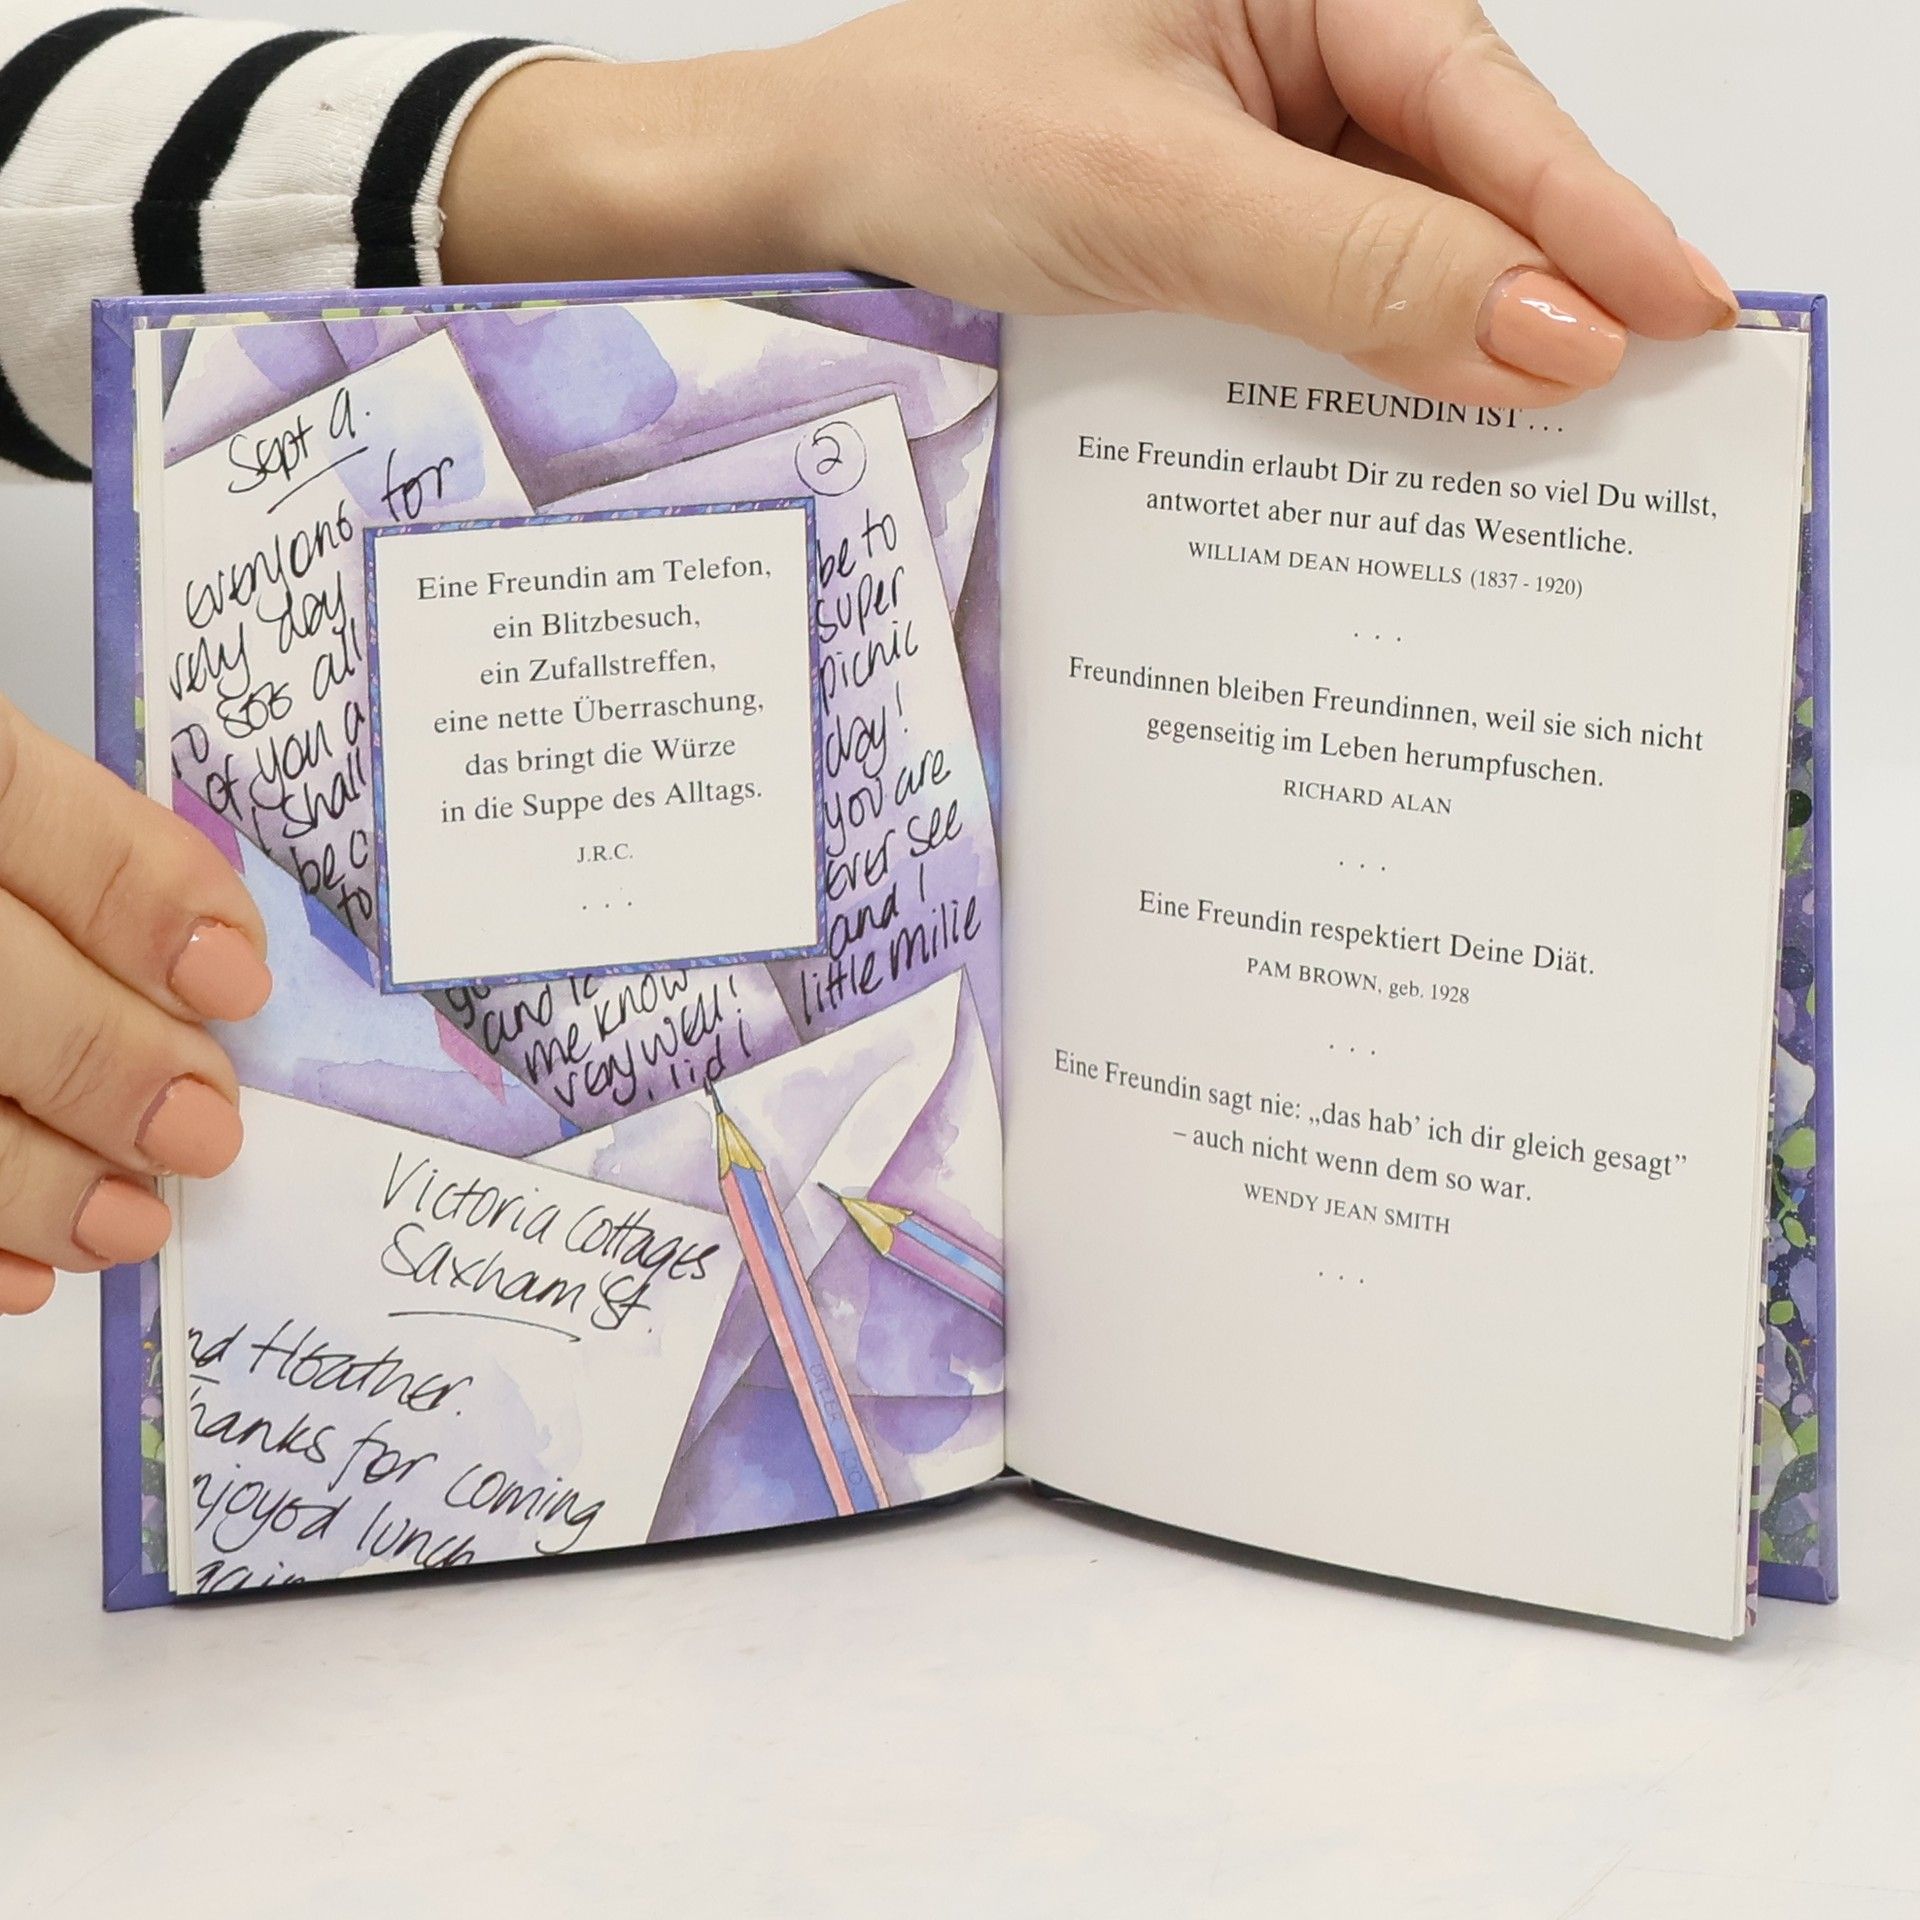 Sept 9.
everyone for
very day
to see all
of you a
I shall
be c
to
2
be to
super
picnic
day!
you are
ever see
and I
little milie
Eine Freundin am Telefon,
ein Blitzbesuch,
ein Zufallstreffen,
eine nette Überraschung,
das bringt die Würze
in die Suppe des Alltags.
J.R.C.
. . .
and ic
me know
very well!
Victoria Cottages
Saxham St.
nd Heather.
hanks for coming
njoyed lunch
gain
EINE FREUNDIN IST . . .
Eine Freundin erlaubt Dir zu reden so viel Du willst,
antwortet aber nur auf das Wesentliche.
WILLIAM DEAN HOWELLS (1837 - 1920)
. . .
Freundinnen bleiben Freundinnen, weil sie sich nicht
gegenseitig im Leben herumpfuschen.
RICHARD ALAN
. . .
Eine Freundin respektiert Deine Diät.
PAM BROWN, geb. 1928
. . .
Eine Freundin sagt nie: „das hab’ ich dir gleich gesagt”
– auch nicht wenn dem so war.
WENDY JEAN SMITH
. . .